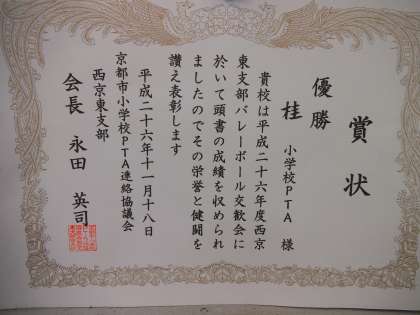 賞状
優勝
桂 小学校PTA 様
貴校は平成二十六年度西京
東支部バレーボール交歓会に
於いて頭書の成績を収められ
ましたのでその栄誉と健闘を
讃え表彰します
平成二十六年十一月十八日
京都市小学校PTA連絡協議会
西京東支部
会長 永田 英司